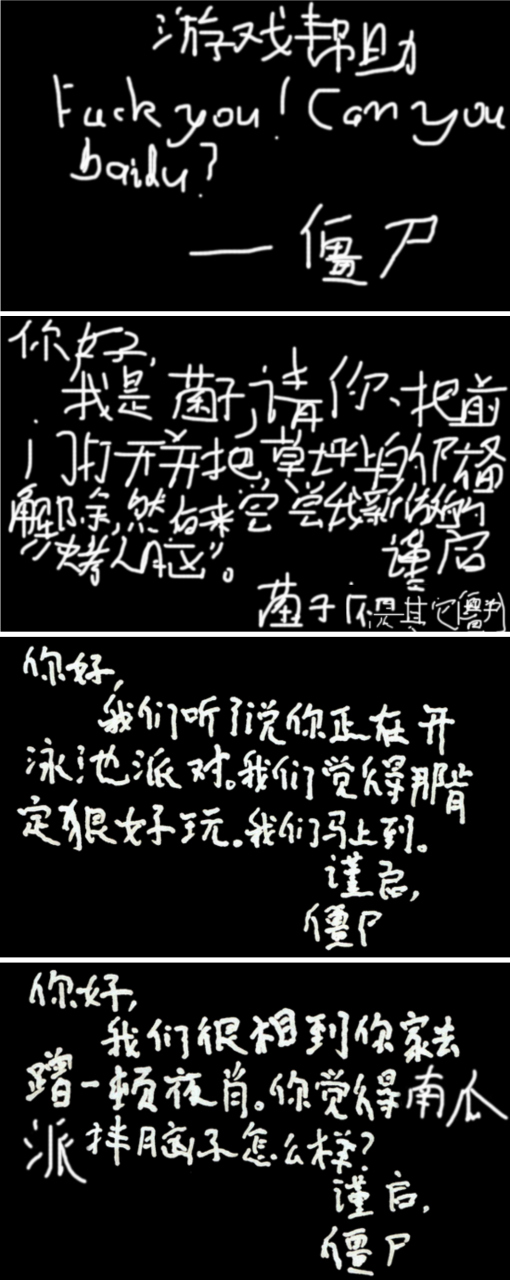 游戏帮助
Fuck you! Can you
baidu?
— 僵尸
你好,
我是菌子,请你把前
门打开并把草坪上的防备
解除,然后来尝尝我新做的
“烧烤人区”。
谨启
菌子(不是其它僵尸)
你好,
我们听了说你正在开
泳池派对。我们觉得那肯
定狠好玩。我们马上到。
谨启,
僵尸
你好,
我们很相到你家去
蹭一顿夜肖。你觉得南瓜
派拌脑子怎么样?
谨启,
僵尸